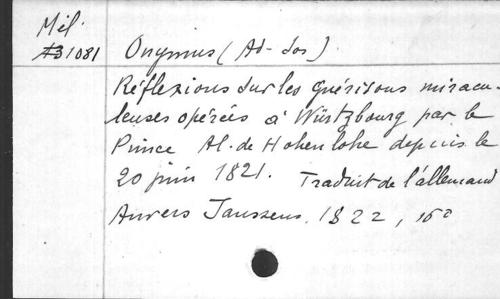 Mél
31081
Onymus (Ad-Jos)
Réflexions sur les guérisons miracu-
leuses opérées à Würtzbourg par le
Prince Al. de Hohenlohe depuis le
20 juin 1821. Traduit de l'allemand
Anvers Janssens, 1822, 16°